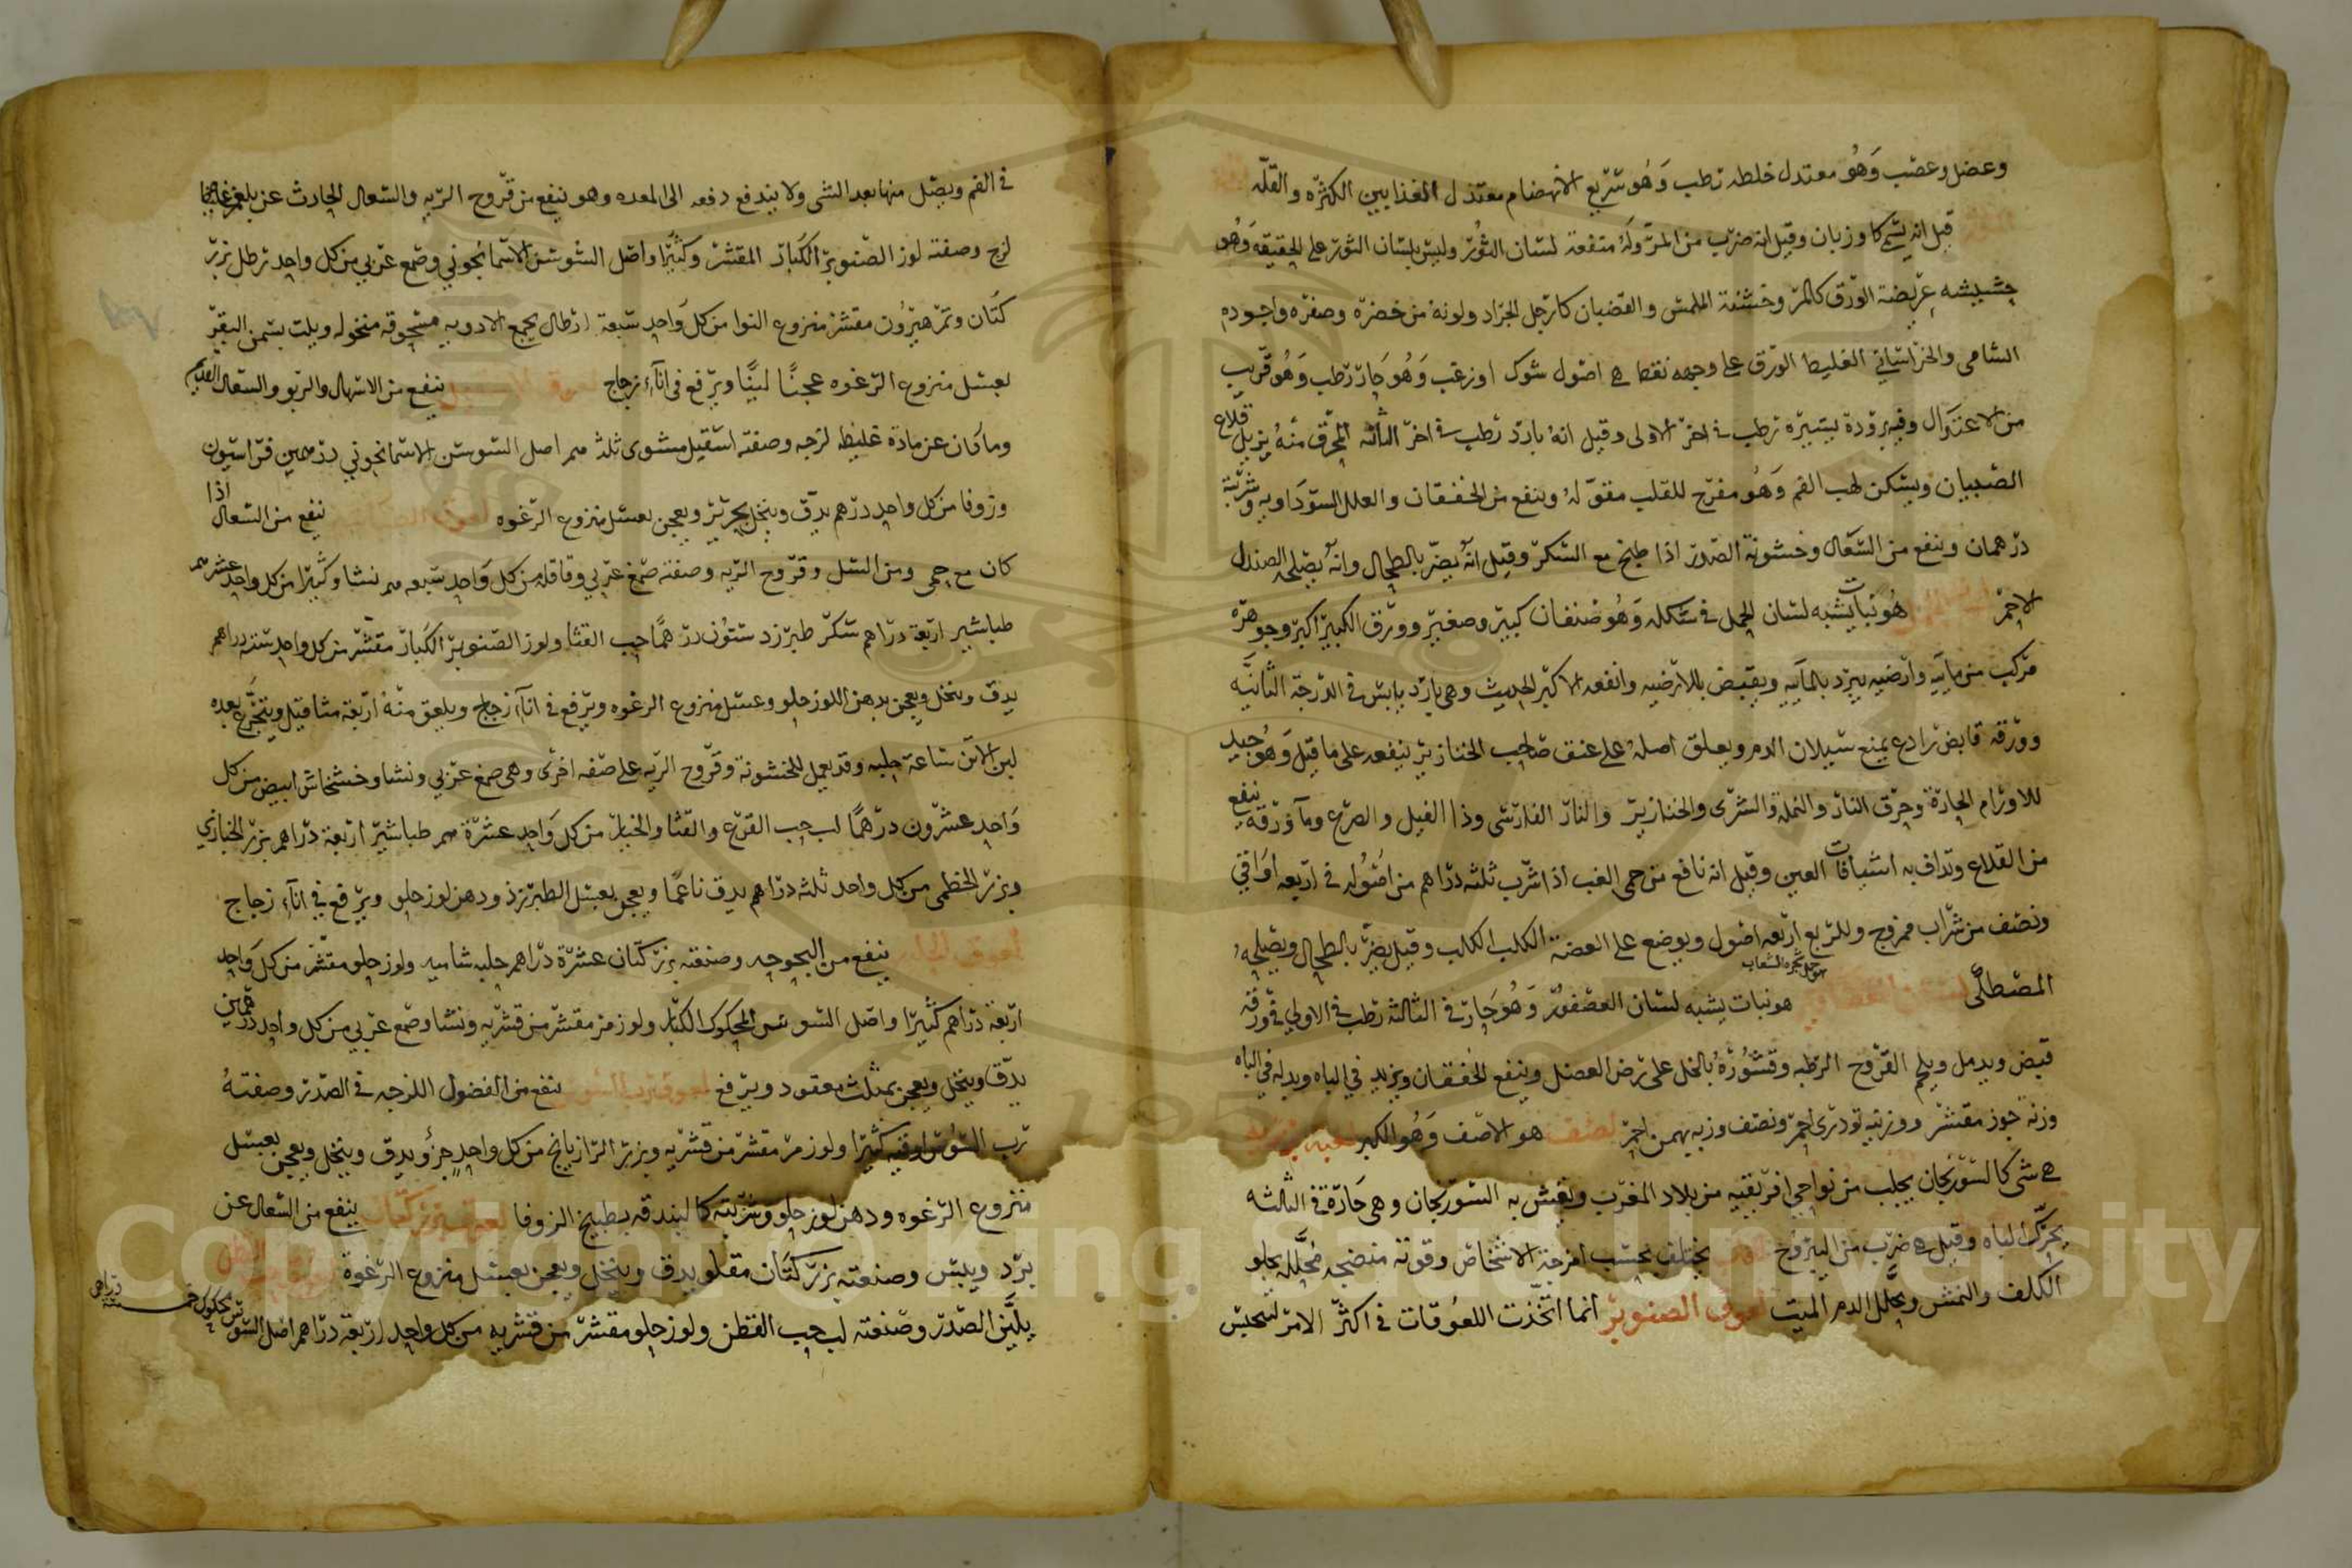 وعضل وعصب وَهُو معتدل خلطه رطب وَهُو سريع الانهضام معتدل الغذا بين الكثره والقلّه
قيل انه يشكا وزبان وقيل انه ضرب من المرّ وله منفعة لسان الثور وليس بلسان الثور على الحقيقه وَهُو
حشيشه عريضة الورق كالمرّ وخشنة الملمس والقضبان كارجل الجراد ولونه من خضرة وصفره واجوده
الشامى والخراسانى الغليظ الورق على وجهه نقط هى اصول شوك او زغب وَهُو حَارّ رطب وَهُو قريب
من الاعتدال وفيه برودة يسيرة رطب فى اخر الاولى وقيل انهُ بارد رطب فى اخر الثالثه المحرق منهُ يزيل قلاع
الصبيان ويسكن لهب الفم وَهُو مفرّح للقلب مقوّ لهُ وينفع من الخفقان والعلل السوداويه وشربته
درهمان وينفع من السّعال وخشونة الصّدر اذا طبخ مع السّكر وقيل انّه يضرّ بالطحال وانّه يصلحه الصندل
الاحمر هُو نبات يشبه لسان الحمل فى شكله وَهُو صنفان كبير وصغير وورق الكبير اكبر وجوهره
مركب من مايّيه وارضيه يبرّد بالمآييه ويقبض بالارضيه وانفعه الاكبر الحديث وهى بارد يابس فى الدرجة الثانيّه
وورقه قابض رادع يمنع سيلان الدم ويعلق اصلهُ على عنق صاحب الخنازير ينفعه على ما قيل وَهُو جيد
للاورام الحارّة وحرق النار والنملة والشرى والخنازير والنار الفارسى وذا الفيل والصرع ومآ ورقه ينفع
من القلاع وتداف به اشيافات العين وقيل انه نافع من حمى الغب اذا شرب ثلثه دراهم من اصُوله فى اربعه اوَاقى
ونصف من شراب ممزوج وللربع اربعه اصول ويوضع على العضة الكلب الكلب وقيل يضرّ بالطحال ويصلحهُ
المصطكى لسان العصافير هو نبات يشبه لسان العصفُور وَهُو حَارّ فى الثالثه رطب فى الاولى فى ورقه
قبض ويدمل ويلحم القروح الرطبه وقشورهُ بالخل على رض العضل وينفع الخفقان ويزيد فى الباه وبدله فى الباه
وزنه جوز مقشر ووزنيه تودرى احمر ونصف وزنه بهمن احمر لصف هو الاصف وَهُو الكبر لعبه بربريه
هى شى كالسّورنجان يجلب من نواحى افريقيه من بلاد المغرب ويغش به السّورنجان وهى حَارّة فى الثالثه
يحرّك الباه وقيل هى ضرب من اليبروح يختلف بحسب امزجة الاشخاص وقوته منضجه محلّله يجلو
الكلف والنمش ويحلّل الدم الميت لعوق الصنوبر انما اتّخذت اللعُوقات فى اكثر الامر لتحبس
فى الفم ويصل منها بعد الشى ولا يندفع دفعه الى المعده وهو ينفع من قروح الريه والسّعال الحادث عن بلغم غليظ
لزج وصفته لوز الصّنوبر الكبار المقشر وكثيرا واصل السّوسن الاسمانجونى وصمغ عربى من كل واحد رطل بزر
كتان وتمر هيرون مقشر منزوع النوا من كل وَاحد سبعة ارطال يجمع الادويه مسحوقه منخوله ويلت بسمن البقر
بعسل منزوع الرغوه عجنًا لينًا ويرفع فى انآء زجاج ينفع من الاسهال والربو والسّعال القديم
وما كَان عن مادّة غليظه لزجه وصفته اسقيل مشوى ثلث اصل السّوسن الاسمانجونى درهمين فراسيون
وزوفا من كل واحد درهم يدق وينخل بحرير ويعجن بعسل منزوع الرّغوه ينفع من السّعال اذا
كان مع حمى ومن السل وقروح الريه وصفته صمغ عربى وقاقله من كل وَاحد سبعه نشا وكثيرا من كل واحد عشره
طباشير اربعة دراهم سكر طبرزد ستون درهمًا حب القثا ولوز الصّنوبر الكبار مقشر من كل واحد ستة دراهم
يدق وينخل ويعجن بدهن اللوز حلو وعسل منزوع الرغوه ويرفع فى انآء زجاج ويلعق منهُ اربعة مثاقيل ويتجرّع بعده
لبن الاتن ساعة حلبه وقد يعمل للخشونة وقروح الريه على صفه اخرى وهى صمغ عربى ونشا وخشخاش ابيض من كل
وَاحد عشرون درهمًا لب حب القرع والقثا والخيار من كل وَاحد عشرة طباشير اربعة دراهم بزر الخبازى
وبزر الخطمى من كل واحد ثلثه دراهم يدق ناعمًا ويعجن بعسل الطبرزد ودهن لوز حلو ويرفع فى انآء زجاج
ينفع من البحوحه وصنعته بزر كتان عشرة دراهم حلبه شاميه ولوز حلو مقشر من كل وَاحد
اربعة دراهم كثيرًا واصل السّوسن المحكوك الكبار ولوز مر مقشر من قشريه ونشا وصمغ عربى من كل واحد درهمين
يدق وينخل ويعجن بمثلث معقود ويرفع لعوق ربّ السّوس ينفع من الفضول اللزجه فى الصّدر وصفتهُ
ربّ السّوس اوقيه كثيرًا ولوز مرّ مقشر من قشريه وبزر الرازيانج من كل واحدٍ جزُو يدق وينخل ويعجن بعسل
منزوع الرّغوه ودهن لوز حلو وشربته كالبندقه بطبيخ الزوفا لعوق بزر كتان ينفع من السّعال عن
برد ويبس وصنعته بزر كتان مقلو يدق وينخل ويعجن بعسل منزوع الرّغوة
يليّن الصّدر وصنعته لب حب القطن ولوز حلو مقشر من قشريه من كل واحد اربعة دراهم اصل السّوس محكوك خمسة دراهم
Copyright © King Saud University
1957